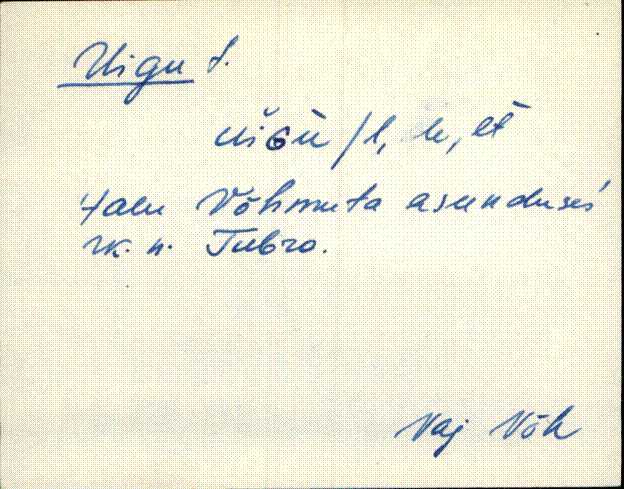 Uigu t.
uĭGŭ /l, le, lt
Talu Võhmuta asunduses
rk. n. Tubro.
Vaj Võh